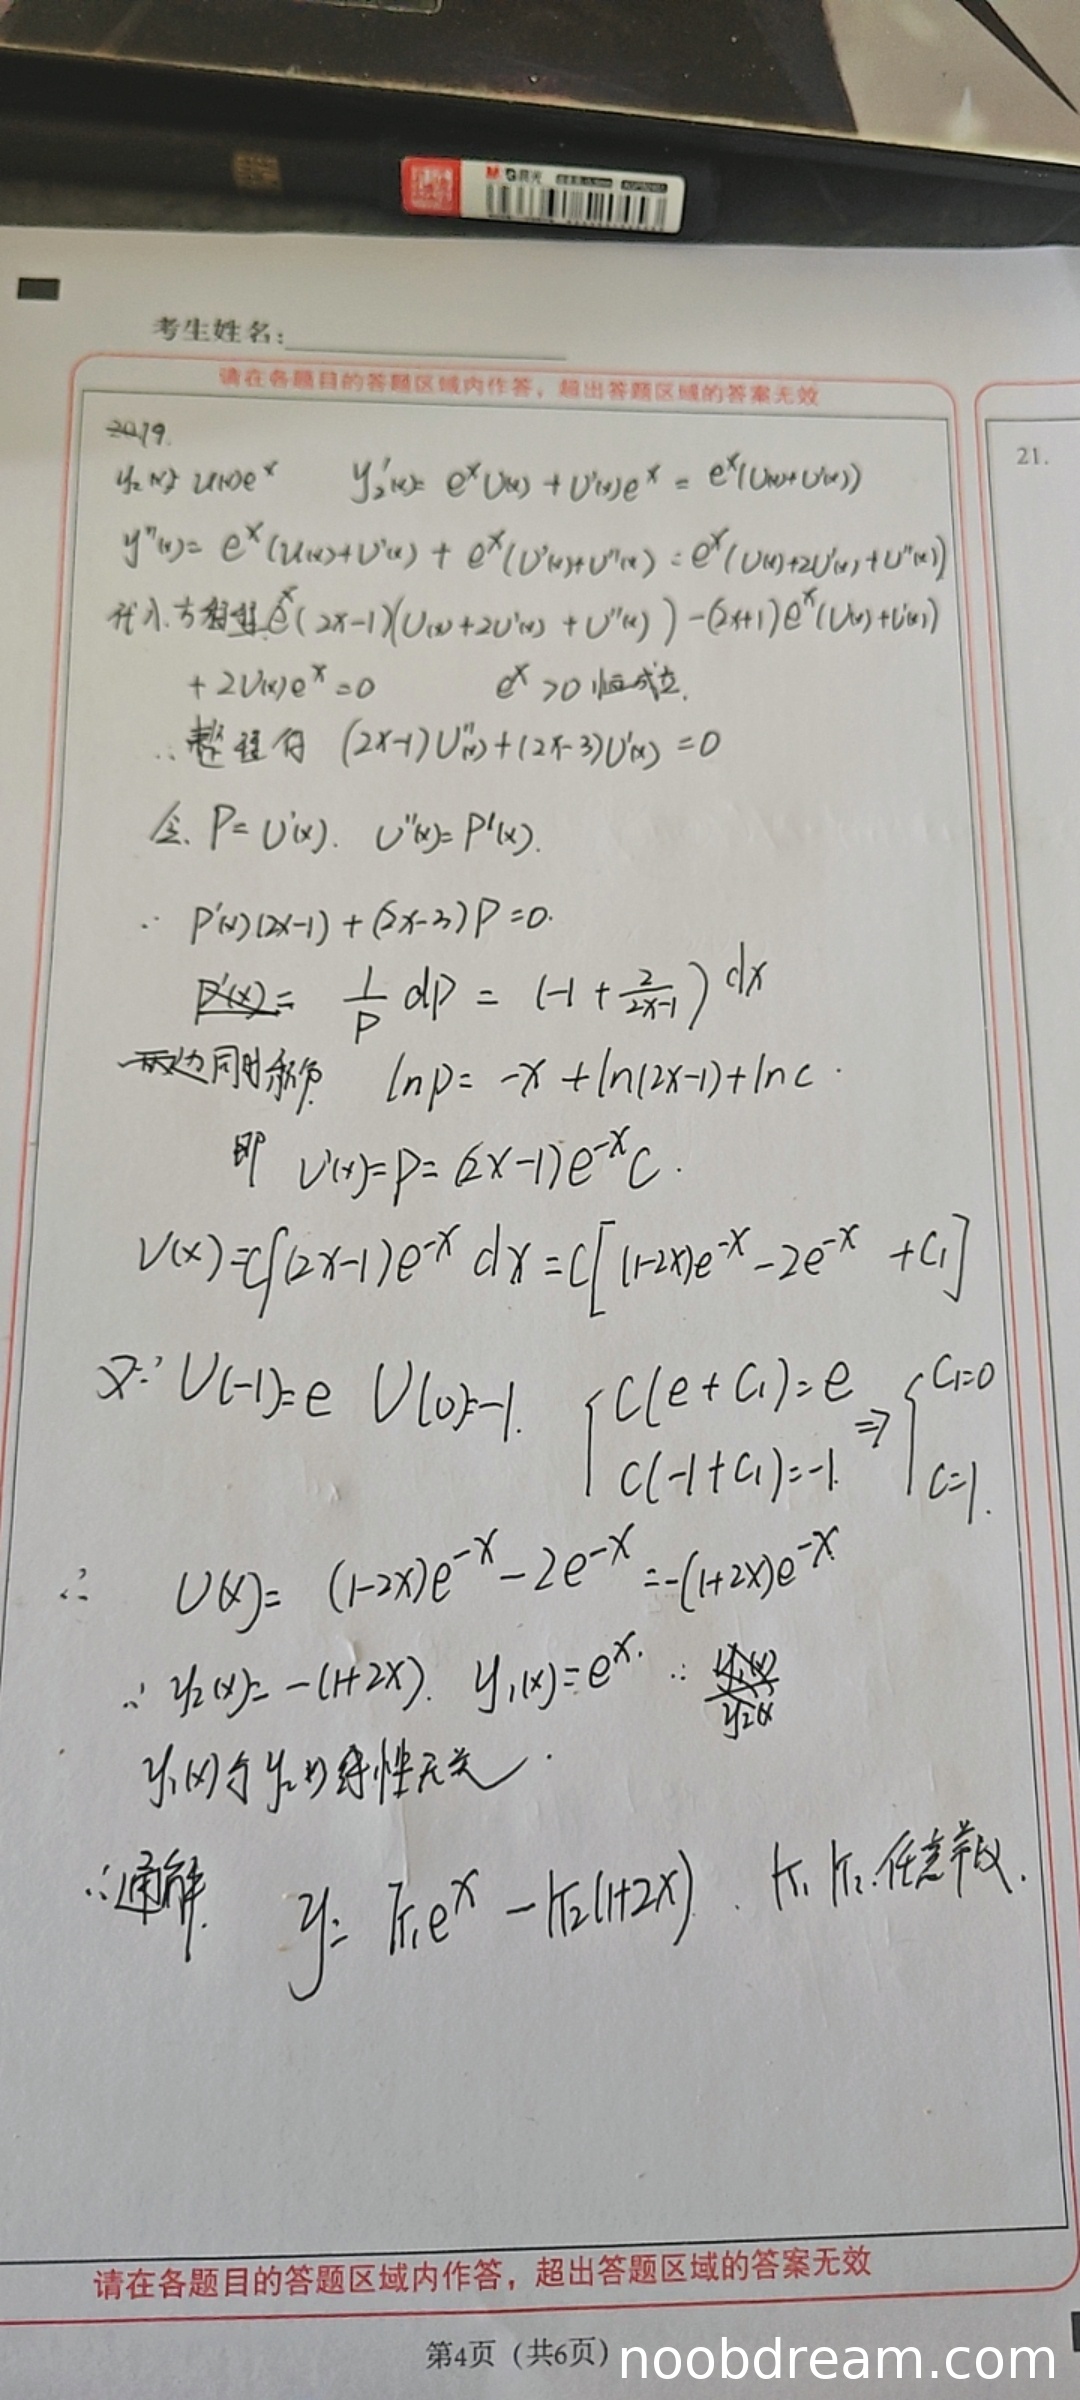 晨光
考生姓名:
请在各题目的答题区域内作答，超出答题区域的答案无效
19.
21.
y₂(x)=u(x)eˣ y₂'(x)= eˣU(x) + U'(x)eˣ = eˣ(U(x)+U'(x))
y''(x)= eˣ(U(x)+U'(x)) + eˣ(U'(x)+U''(x)) = eˣ(U(x)+2U'(x)+U''(x))
代入方程得 eˣ(2x-1)(U(x)+2U'(x)+U''(x)) -(2x+1)eˣ(U(x)+U'(x))
+2U(x)eˣ=0 eˣ>0 恒成立.
∴整理得 (2x-1)U''(x)+(2x-3)U'(x)=0
令 P=U'(x). U''(x)=P'(x).
∴ P'(x)(2x-1)+(2x-3)P=0.
P'(x)= 1/P dP = (-1+2/(2x-1))dx
两边同时积分 lnp= -x+ln(2x-1)+lnc.
即 U'(x)=p=(2x-1)e⁻ˣC.
U(x)=C∫(2x-1)e⁻ˣ dx=C[(1-2x)e⁻ˣ-2e⁻ˣ +C₁]
又∵U(-1)=e U(0)=-1. {C(e+C₁)=e C(-1+C₁)=-1. ⇒ {C₁=0 C=1.
∴ U(x)= (1-2x)e⁻ˣ-2e⁻ˣ=-(1+2x)e⁻ˣ
∴ y₂(x)=-(1+2x). y₁(x)=eˣ. ∵ y₁(x)/y₂(x
y₁(x)与y₂(x)线性无关.
∴通解. y= k₁eˣ-k₂(1+2x). k₁ k₂.任意常数.
请在各题目的答题区域内作答，超出答题区域的答案无效
第4页（共6页）
noobdream.com